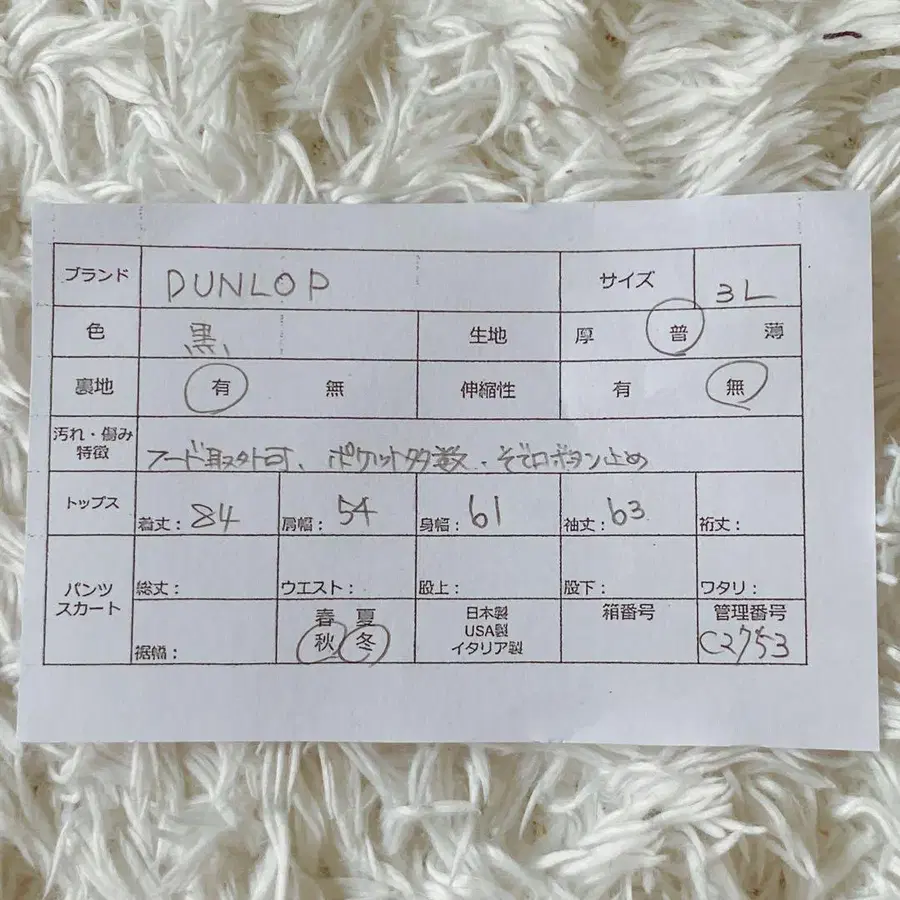 ブランド DUNLOP サイズ 3L
色 黒 生地 厚 普 薄
裏地 有 無 伸縮性 有 無
汚れ・傷み
特徴 フード取外可、ポケット多数、そで口ボタン止め
トップス 着丈：84 肩幅：54 身幅：61 袖丈：63 裄丈：
パンツ
スカート 総丈： ウエスト：股上： 股下： ワタリ：
裾幅： 春 夏
秋 冬
日本製
USA製
イタリア製
箱番号
管理番号
C2753